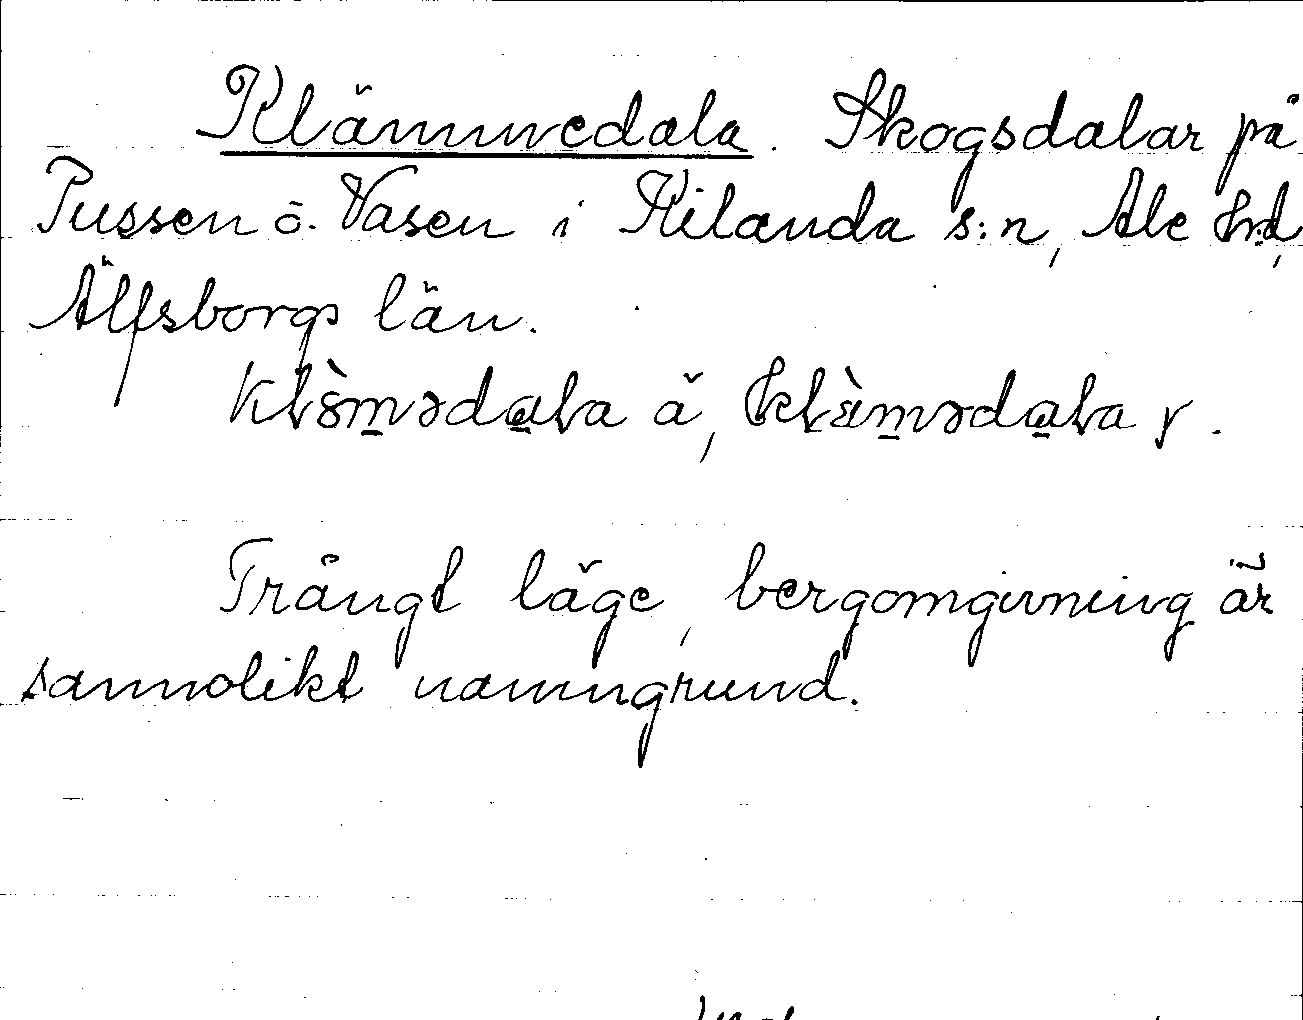 Klämmedala. Skogsdalar på
Pussen ö. Vasen i Kilanda s:n, Ale hd,
Älfsborgs län.
ä,
Trångt läge, bergomgivning är
sannolikt namngrund.